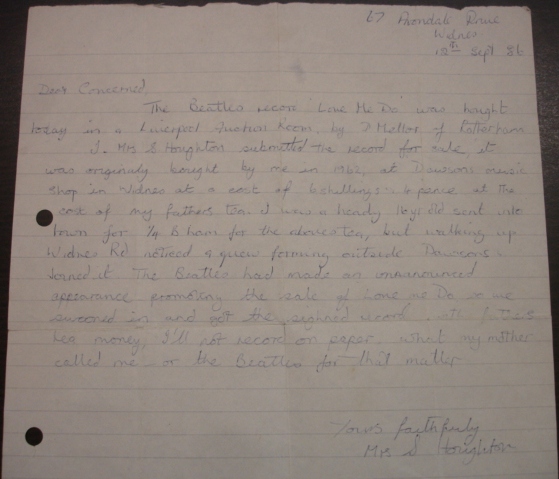 67 Avondale Drive
Widnes
12th Sept 86
Dear Concerned,
The Beatles record 'Love Me Do' was bought
today in a Liverpool Auction Room, by Mellor of Rotherham
I, Mrs S Houghton submitted the record for sale, it
was originally bought by me in 1962, at Dawsons music
shop in Widnes at a cost of 6 shillings & 4 pence at the
cost of my fathers tea. I was a heady 16yr old sent into
town for 1/4 lb ham for the above tea, but walking up
Widnes Rd noticed a queue forming outside Dawsons,
Joined it. The Beatles had made an unannounced
appearance promoting the sale of Love me Do so we
swooned in and got the signed record with
tea money, I'll not record on paper what my mother
called me - or the Beatles for that matter
Yours faithfully
Mrs S Houghton